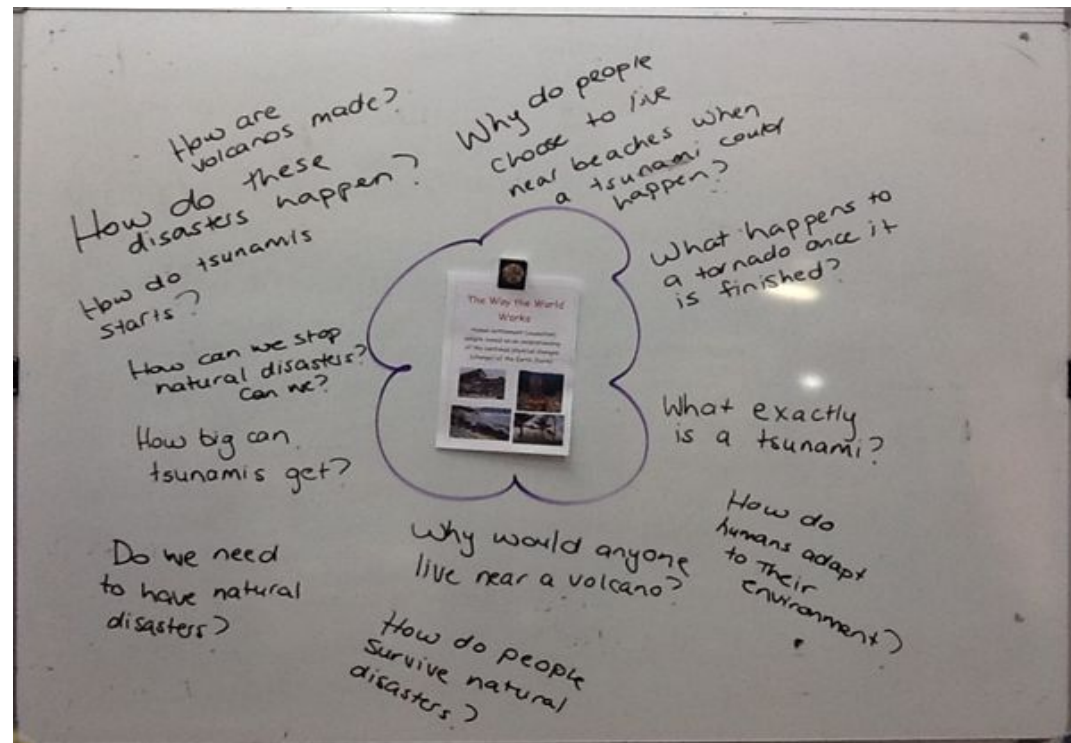 How are
volcanos made?
How do these
disasters happen?
How do tsunamis
starts?
How can we stop
natural disasters?
can we?
How big can
tsunamis get?
Do we need
to have natural
disasters?
Why do people
choose to live
near beaches when
a tsunami could
happen?
What happens to
a tornado once it
is finished?
The Way the World
Works
What exactly
is a tsunami?
How do
humans adapt
to Their
environment?
Why would anyone
live near a volcano?
How do people
survive natural
disasters?